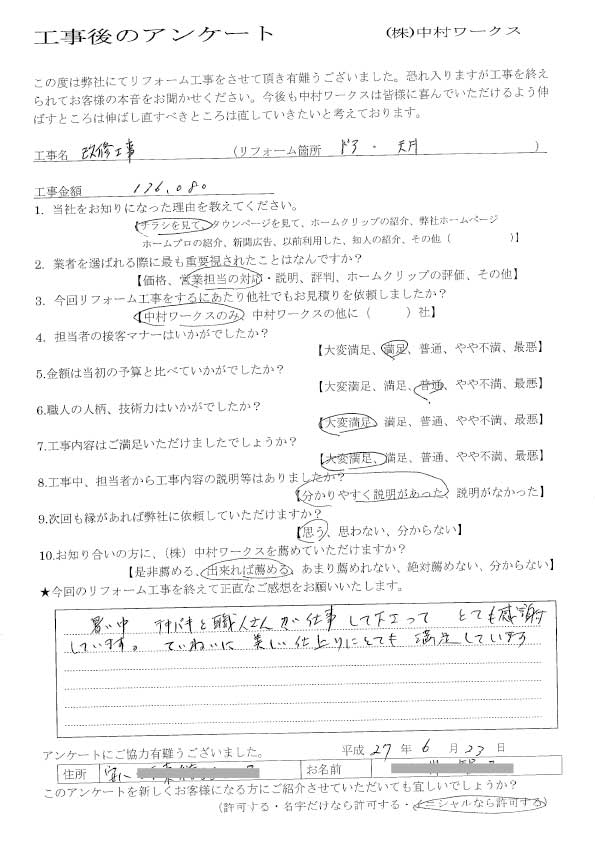 工事後のアンケート (株)中村ワークス
この度は弊社にてリフォーム工事をさせて頂き有難うございました。恐れ入りますが工事を終え
られてお客様の本音をお聞かせください。今後も中村ワークスは皆様に喜んでいただけるよう伸
ばすところは伸ばし直すべきところは直していきたいと考えております。
工事名 改修工事 (リフォーム箇所 ドア・天井 )
工事金額 176,080
1. 当社をお知りになった理由を教えてください。
【チラシを見て、タウンページを見て、ホームクリップの紹介、弊社ホームページ
ホームプロの紹介、新聞広告、以前利用した、知人の紹介、その他( )】
2. 業者を選ばれる際に最も重要視されたことはなんですか?
【価格、営業担当の対応・説明、評判、ホームクリップの評価、その他】
3. 今回リフォーム工事をするにあたり他社でもお見積りを依頼しましたか?
【中村ワークスのみ、中村ワークスの他に( )社】
4. 担当者の接客マナーはいかがでしたか?
【大変満足、満足、普通、やや不満、最悪】
5.金額は当初の予算と比べていかがでしたか?
【大変満足、満足、普通、やや不満、最悪】
6.職人の人柄、技術力はいかがでしたか?
【大変満足、満足、普通、やや不満、最悪】
7.工事内容はご満足いただけましたでしょうか?
【大変満足、満足、普通、やや不満、最悪】
8.工事中、担当者から工事内容の説明等はありましたか?
【分かりやすく説明があった、説明がなかった】
9.次回も縁があれば弊社に依頼していただけますか?
【思う、思わない、分からない】
10.お知り合いの方に、(株)中村ワークスを薦めていただけますか?
【是非薦める、出来れば薦める、あまり薦めれない、絶対薦めない、分からない】
★今回のリフォーム工事を終えて正直なご感想をお願いいたします。
暑い中 テキパキと職人さんが仕事して下さって とても感謝
しています。ていねいに美しい仕上りにとても満足しています
アンケートにご協力有難うございました。 平成 27 年 6 月 23 日
住所 お名前
このアンケートを新しくお客様になる方にご紹介させていただいても宜しいでしょうか?
(許可する・名字だけなら許可する・イニシャルなら許可する)